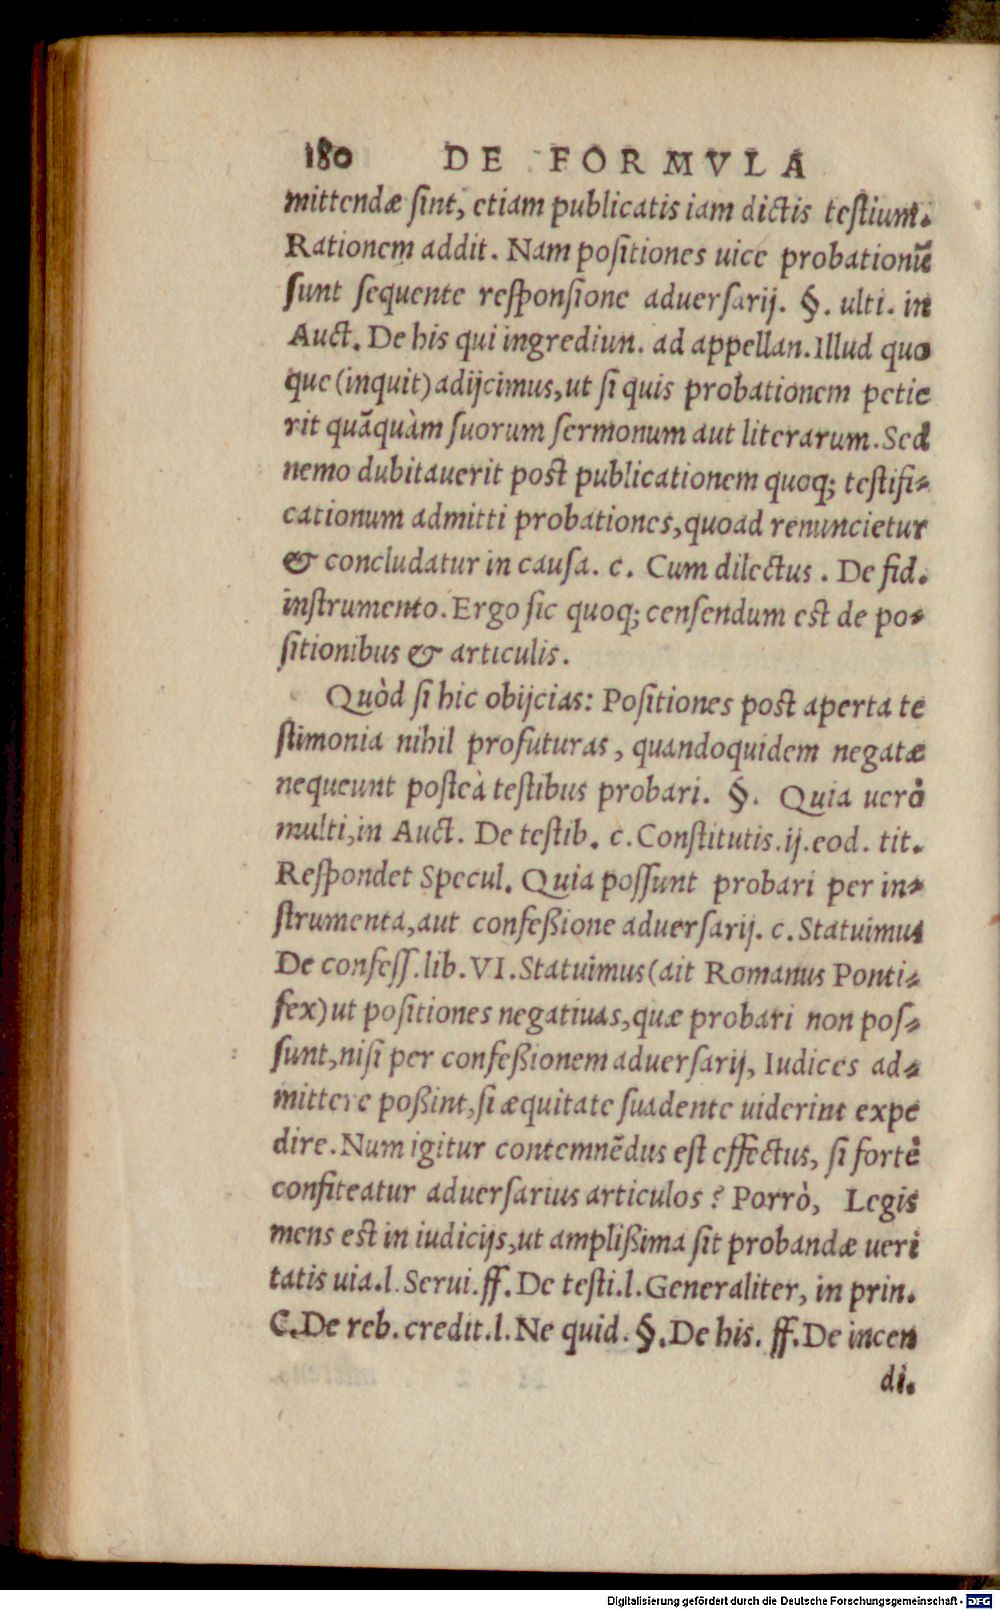 180 DE FORMVLA
mittendæ sint, etiam publicatis iam dictis testium.
Rationem addit. Nam positiones uice probationũ
sunt sequente responsione aduersarij. §. ulti. in
Auct. De his qui ingrediun. ad appellan. Illud quo
que (inquit) adijcimus, ut si quis probationem petie
rit quãquàm suorum sermonum aut literarum. Sed
nemo dubitauerit post publicationem quoq; testifi-
cationum admitti probationes, quoad renuncietur
& concludatur in causa. c. Cum dilectus. De fid.
instrumento. Ergo sic quoq; censendum est de po-
sitionibus & articulis.
Quòd si hic obijcias: Positiones post aperta te
stimonia nihil profuturas, quandoquidem negatæ
nequeunt posteà testibus probari. §. Quia uerò
multi, in Auct. De testib. c. Constitutis. ij. eod. tit.
Respondet Specul. Quia possunt probari per in-
strumenta, aut confeßione aduersarij. c. Statuimus
De confess. lib. VI. Statuimus (ait Romanus Ponti-
fex) ut positiones negatiuas, quæ probari non pos-
sunt, nisi per confeßionem aduersarij, Iudices ad-
mittere poßint, si æquitate suadente uiderint expe
dire. Num igitur contemnẽdus est effectus, si fortè
confiteatur aduersarius articulos? Porrò, Legis
mens est in iudicijs, ut amplißima sit probandæ ueri
tatis uia. l. Serui. ff. De testi. l. Generaliter, in prin.
C. De reb. credit. l. Ne quid. §. De his. ff. De incen
di.
Digitalisierung gefördert durch die Deutsche Forschungsgemeinschaft - DFG